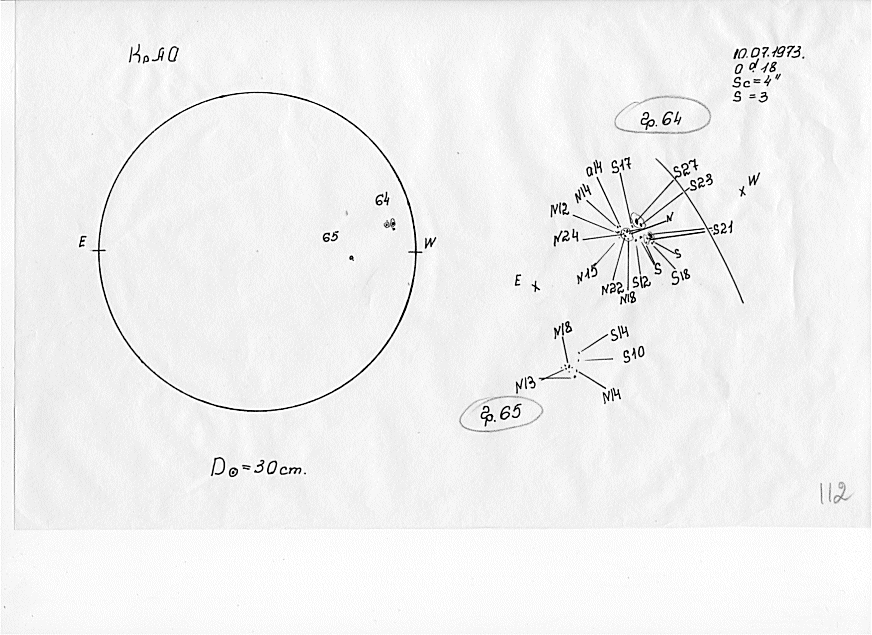 КрАО
10.07.1973.
0 d. 18
Sc = 4"
S = 3
гр. 64
a14 S17
S27
S23
W
N14
N12
N
N24
S21
N15
S
S
N22 S12 S18
N18
E
64
65
E
W
N18
S14
S10
N13
N14
гр. 65
D⊙ = 30 cm.
112